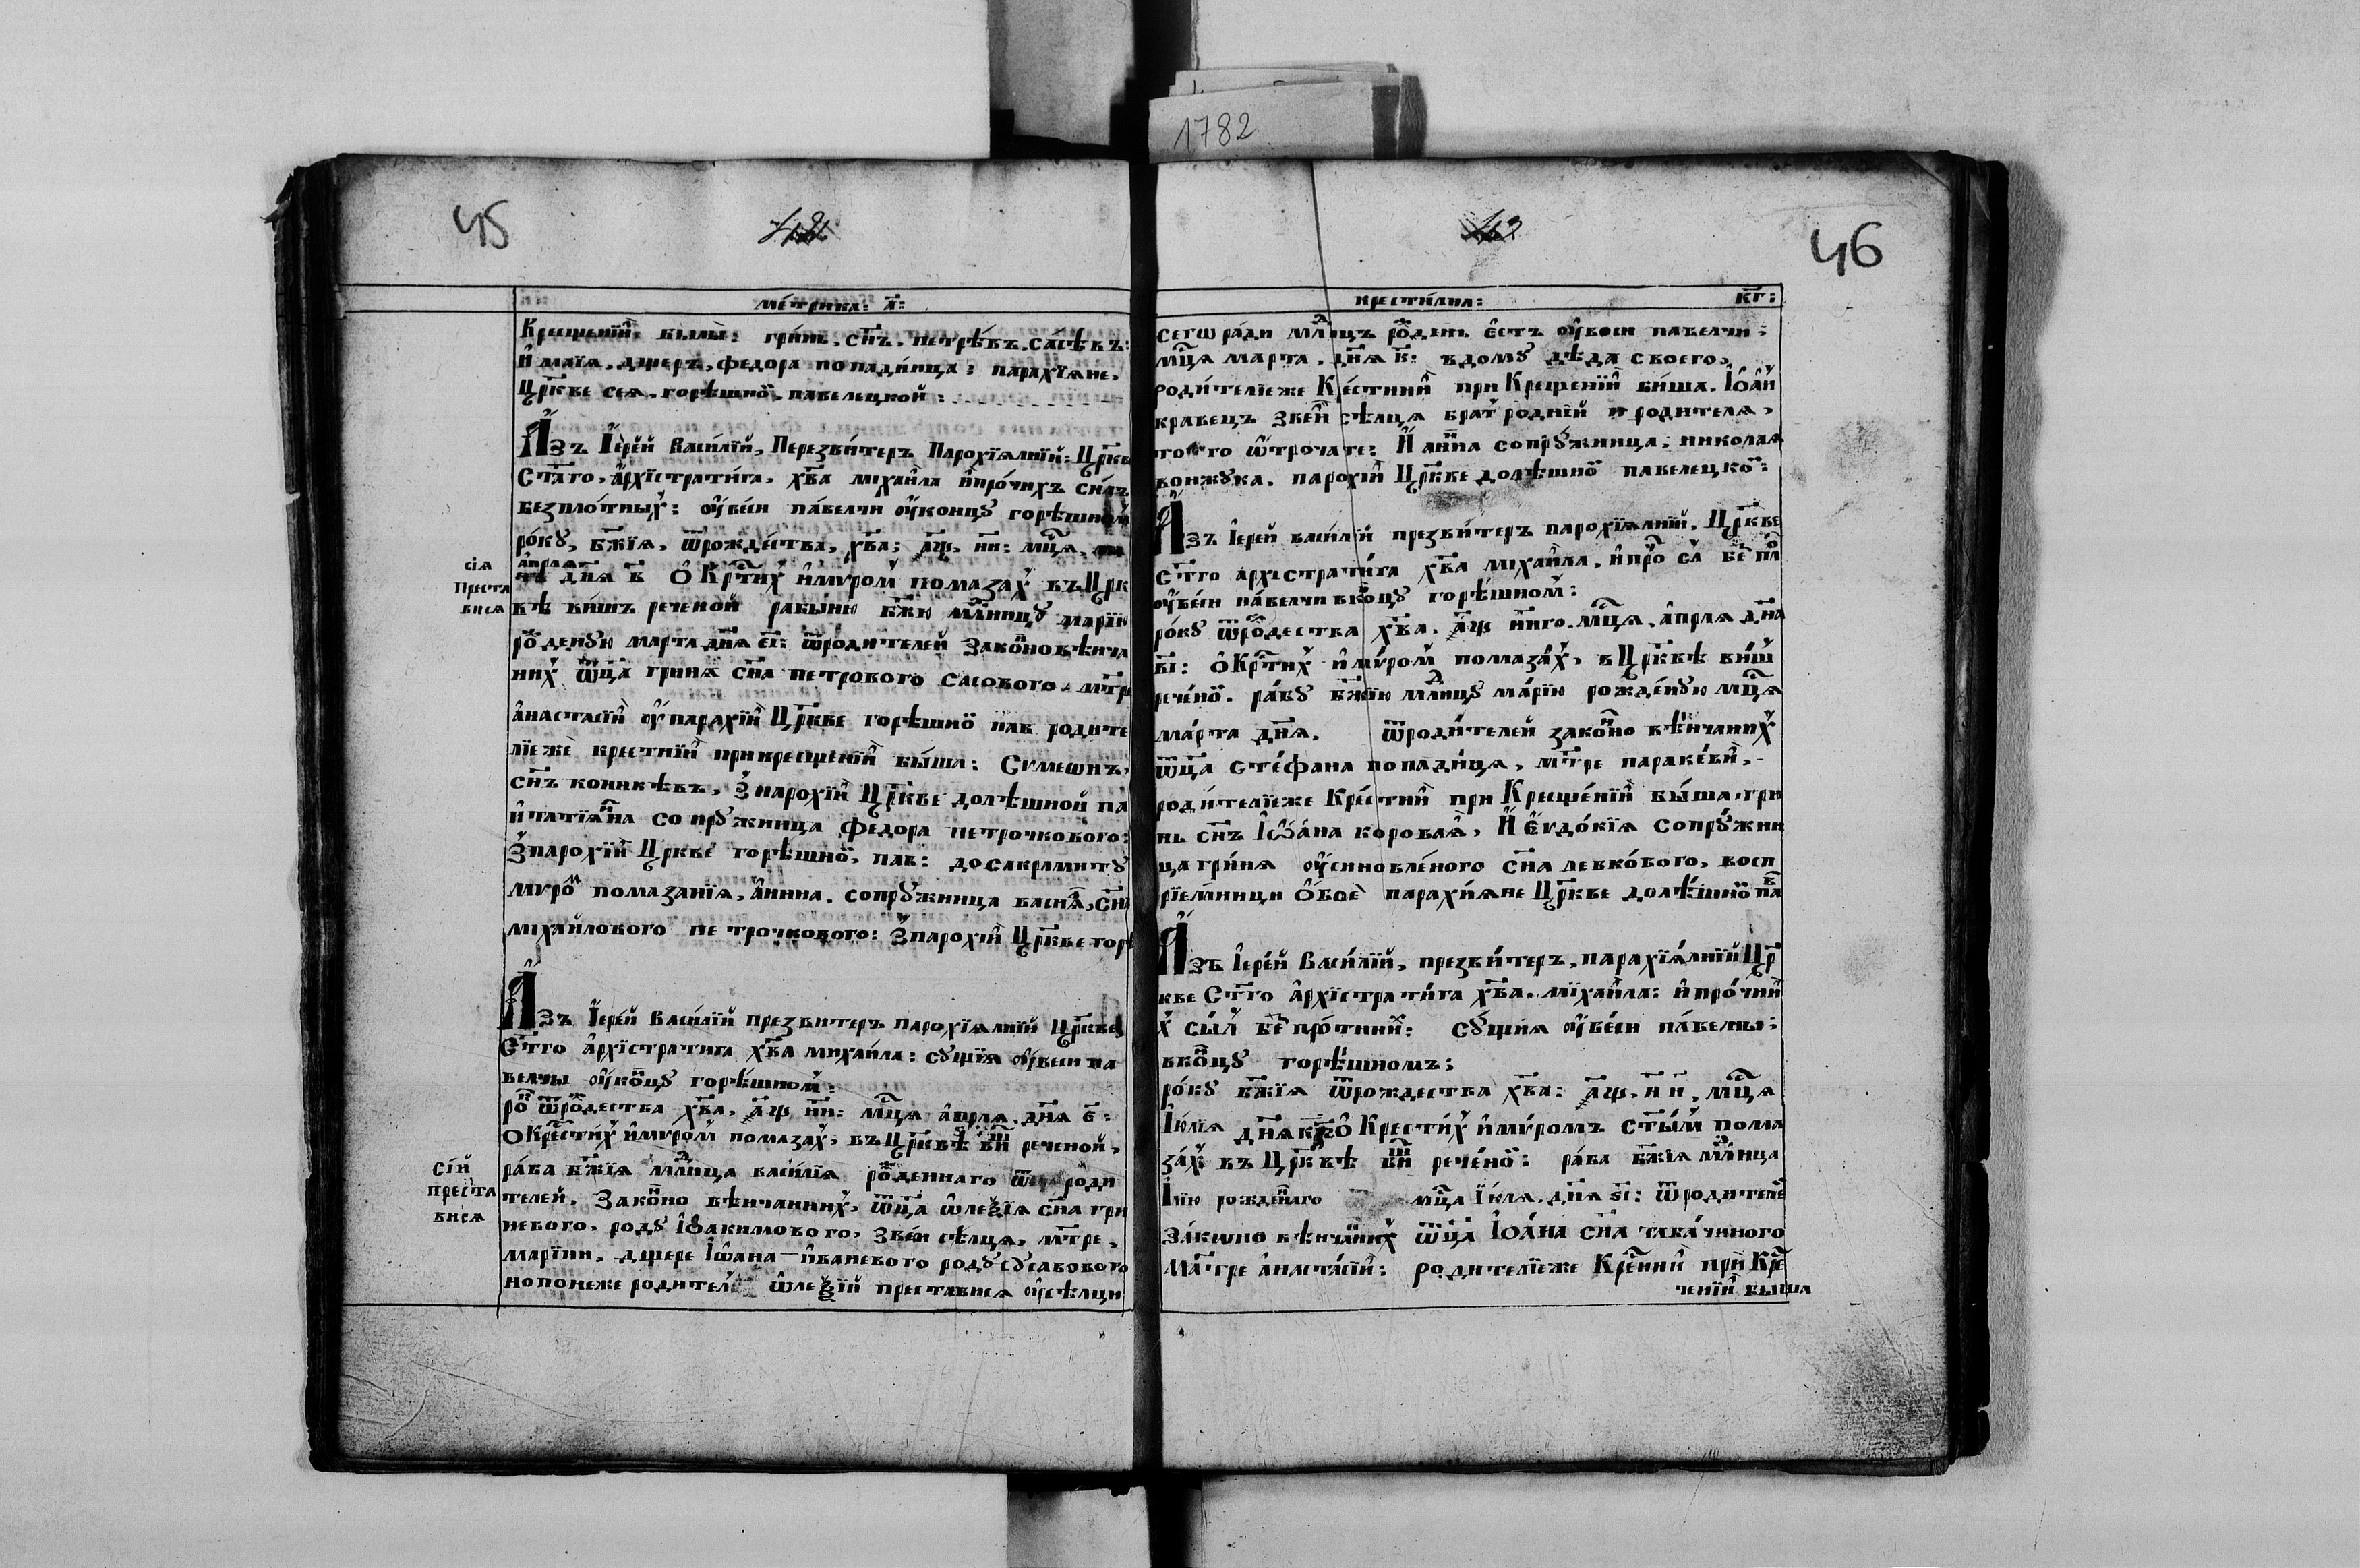 1782
45
46
ме́трика: а҃:
Креще́нїи̂, были̂: гри́нь. сн҃ъ. петре́въ. са́сѣвъ:
и̂ маїя. дщеръ, федора попади́нца; парахїѧне.
Цр҃кве сеѧ. горѣшнѡ̈. павелецкой:
А҆зъ І҆ере́й Васи́лїй, Перезви́теръ Парохїѧлнїй: Цр҃кв
Ст҃аго, а҆рхїстрати́га, хв҃а міхаи̂ла и̂про́чихъ си́лъ
безпло́тных̾: оу҆ве́си па́велчи оу҆концꙋ горѣшном
ро́кꙋ, бж҃їѧ, ѿрожде́ства, хв҃а; а҃ѱ, н҃и: мц҃ѧ,
а҆прлѧ
дн҃ѧ в҃ О҆ Кр҃тих̾ и҆мѵром̾ помазах̾ въ Црк
вѣ ви́шъ реченой рабыню бж҃ю мл҃ницꙋ марїю
сїѧ
Преста
висѧ
ро́ денꙋю марта дн҃ѧ е҃і: ѿродителей Зако́новѣнча
них̾ ѿц҃а гринѧ сн҃а петрового сасового. мт҃р
а҆настасїи̂ оу҆парахїи̂ Цр҃кве горѣшнѡ̈ пав родите
лїеже̂ крестнїи̂ прикреще́нїи̂ бы́ша: Сѵмеѡнъ,
сн҃ъ коникѣвъ, З̾парохїи̂ Цр҃кве долѣшной па
и҆татїѧна сопрꙋжница федора петрочкового:
З̾парохїи̂ Цркве̂ горѣшнѡ̈, пав: досакраминтꙋ
мѵро́м помазанїѧ, а҆нина. сопрꙋжница василѧ, сн҃а
міхаи̂лового петрочкового: З̾парохїи̂ Цр҃кве гор
А҆зъ І҆ере́й Васи́лїй презвитеръ парохїѧлнїй Цр҃кве
Ст҃го а҆рхїстратига хв҃а михаи́ла: сꙋщїѧ оу҆веси па
велчы оу҆концꙋ горѣшном̾:
ро́ ѿро́дества хв҃а, а҃ѱ н҃и: мц҃ѧ а҆прлѧ дн҃ѧ е҃:
О҆Крести́х̾ и҆мѵро́м̾ помазах̾, въ Цр҃квѣ ви́ш реченой,
ра́ба бж҃їѧ мл҃нца васи́лїѧ ро́деннаго ѿ роди
Сі́й
преста
висѧ
телей. Зако́нно вѣнчанних̾, ѿц҃а ѡ҆леѯїѧ сн҃а гри
невого, родꙋ і҆ѡакимового, звеси сѣлцѧ, мт҃ре,
марїни, дщере І҆ѡана и҆ваневого родꙋ сꙋсавового
но понеже родител ѡ҆леѯїй престависѧ оу҆сѣлци
крести́лна:
к҃г:
сегѡ ра́ди мл҃нцъ ро́денъ е҆стъ оу҆веси павелчи;
мц҃ѧ марта, дн҃ѧ к҃: вдомꙋ дѣда своего,
роди́телїеже Кре́стнии̂ при Креще́нїи̂ бы́ша. І҆ѡа́н
кравецъ звеи̂ сѣлцѧ брат̾ роднїй родителѧ,
того ѿтрочате: И҆ а҆нна сопрꙋжница, николаѧ
вонжꙋка, парохїи̂ Цр҃кве долѣшнѡ̈ павелецкѡ̈:
А҆зъ І҆ерей васи́лїй презви́теръ парохїѧлнїй. Цр҃кве
ст҃го архїстрати́га хв҃а міхаи̂ла, и҆про сл̾ бе́ пл
оу҆ве́си па́велчи вконцꙋ горѣшном̾:
ро́кꙋ ѿро́дества хв҃а, а҃ѱ н҃иго. мц҃ѧ, а҆прлѧ дн҃а
в҃і: О҆Кр҃тих̾ и҆мѵ́ром̾ помаза́х̾, в Цр҃квѣ ви́ш
рече́нѡ̈. ра́бꙋ бж҃їю мл҃ницꙋ ма́рїю рожде́нꙋю мц҃ѧ
ма́рта дн҃ѧ. ѿроди́телей зако́нно вѣ́нчаних̾
ѿц҃а сте́фана попади́нцѧ, мт҃ре параке́ви̂,
роди́телїеже Кре́стнии̂ при Креще́нїи̂ бы́ша, гри
нь сн҃ъ І҆ѡа́на короваѧ̂, И҆ е҆ѵдо́кїѧ сопрꙋ́жни
ца гри́нѧ оу҆синовле́ного сн҃а левко́вого, восп
рїе́мници О҆́бое̂ парахїѧне Цр҃кве долѣ́шнѡ̈ пав
А҆зъ І҆ере́й Васи́лїй, презви́теръ, парахїѧ́лнїй Цр҃
кве Ст҃го а҆рхїстрати́га хв҃а, міхаи̂ла: и҆про́чии̂
х̾ сы́л̾ бе́ про́тнии̂: сꙋ́щиѧ оу҆ве́си па́велчы;
вконцꙋ горѣ́шномъ;
ро́кꙋ бж҃їѧ ѿрождества хв҃а: а҃ѱ, н҃ и҃, мц҃ѧ
І҆ю́лїѧ дн҃ѧ к О҆ Крести́х̾ и҆мѵ́ромъ ст҃ы́м̾ пома
за́х̾ въ Цр҃квѣ ви́ш рече́нѡ̈: ра́ба бж҃їѧ мл҃нца
І҆лїю рожде́ннаго мц҃а І҆ю́лѧ. дн҃ѧ ѕ҃і: ѿродителе̂
За́кѡно вѣнча́нних̾ ѿц҃а І҆ѡа́на сн҃а така́чиного
Ма҃тре а҆наста́сїи̂: родителїеже Кре́нии̂ при Кре
ченїи̂ быша